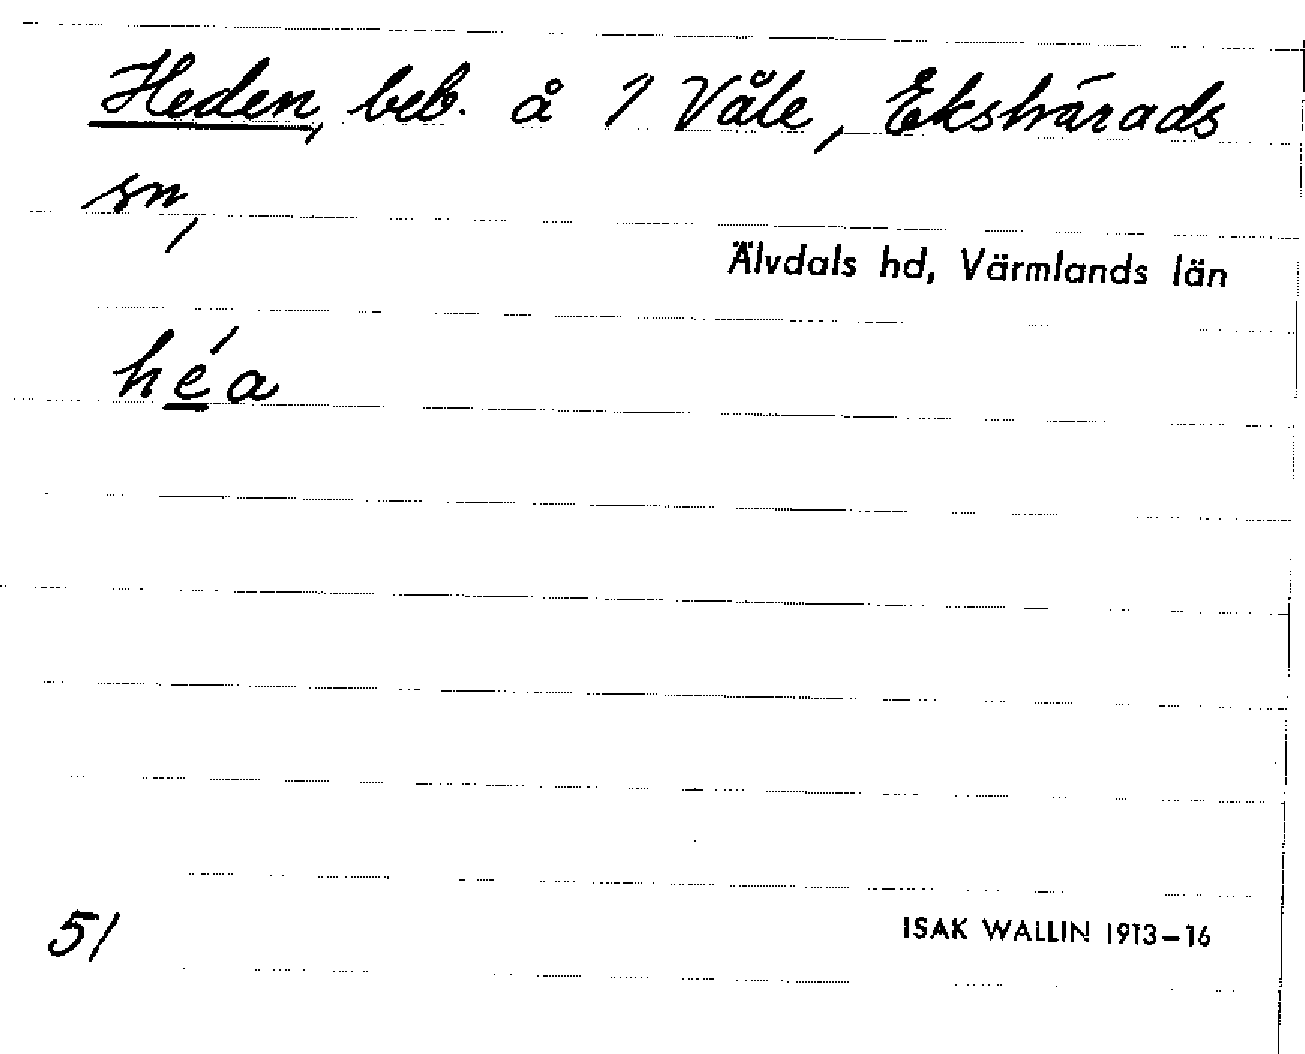 Heden, beb. å 1 Våle, Ekshärads
sn,
Älvdals hd, Värmlands län
héa
51
ISAK WALLIN 1913-16